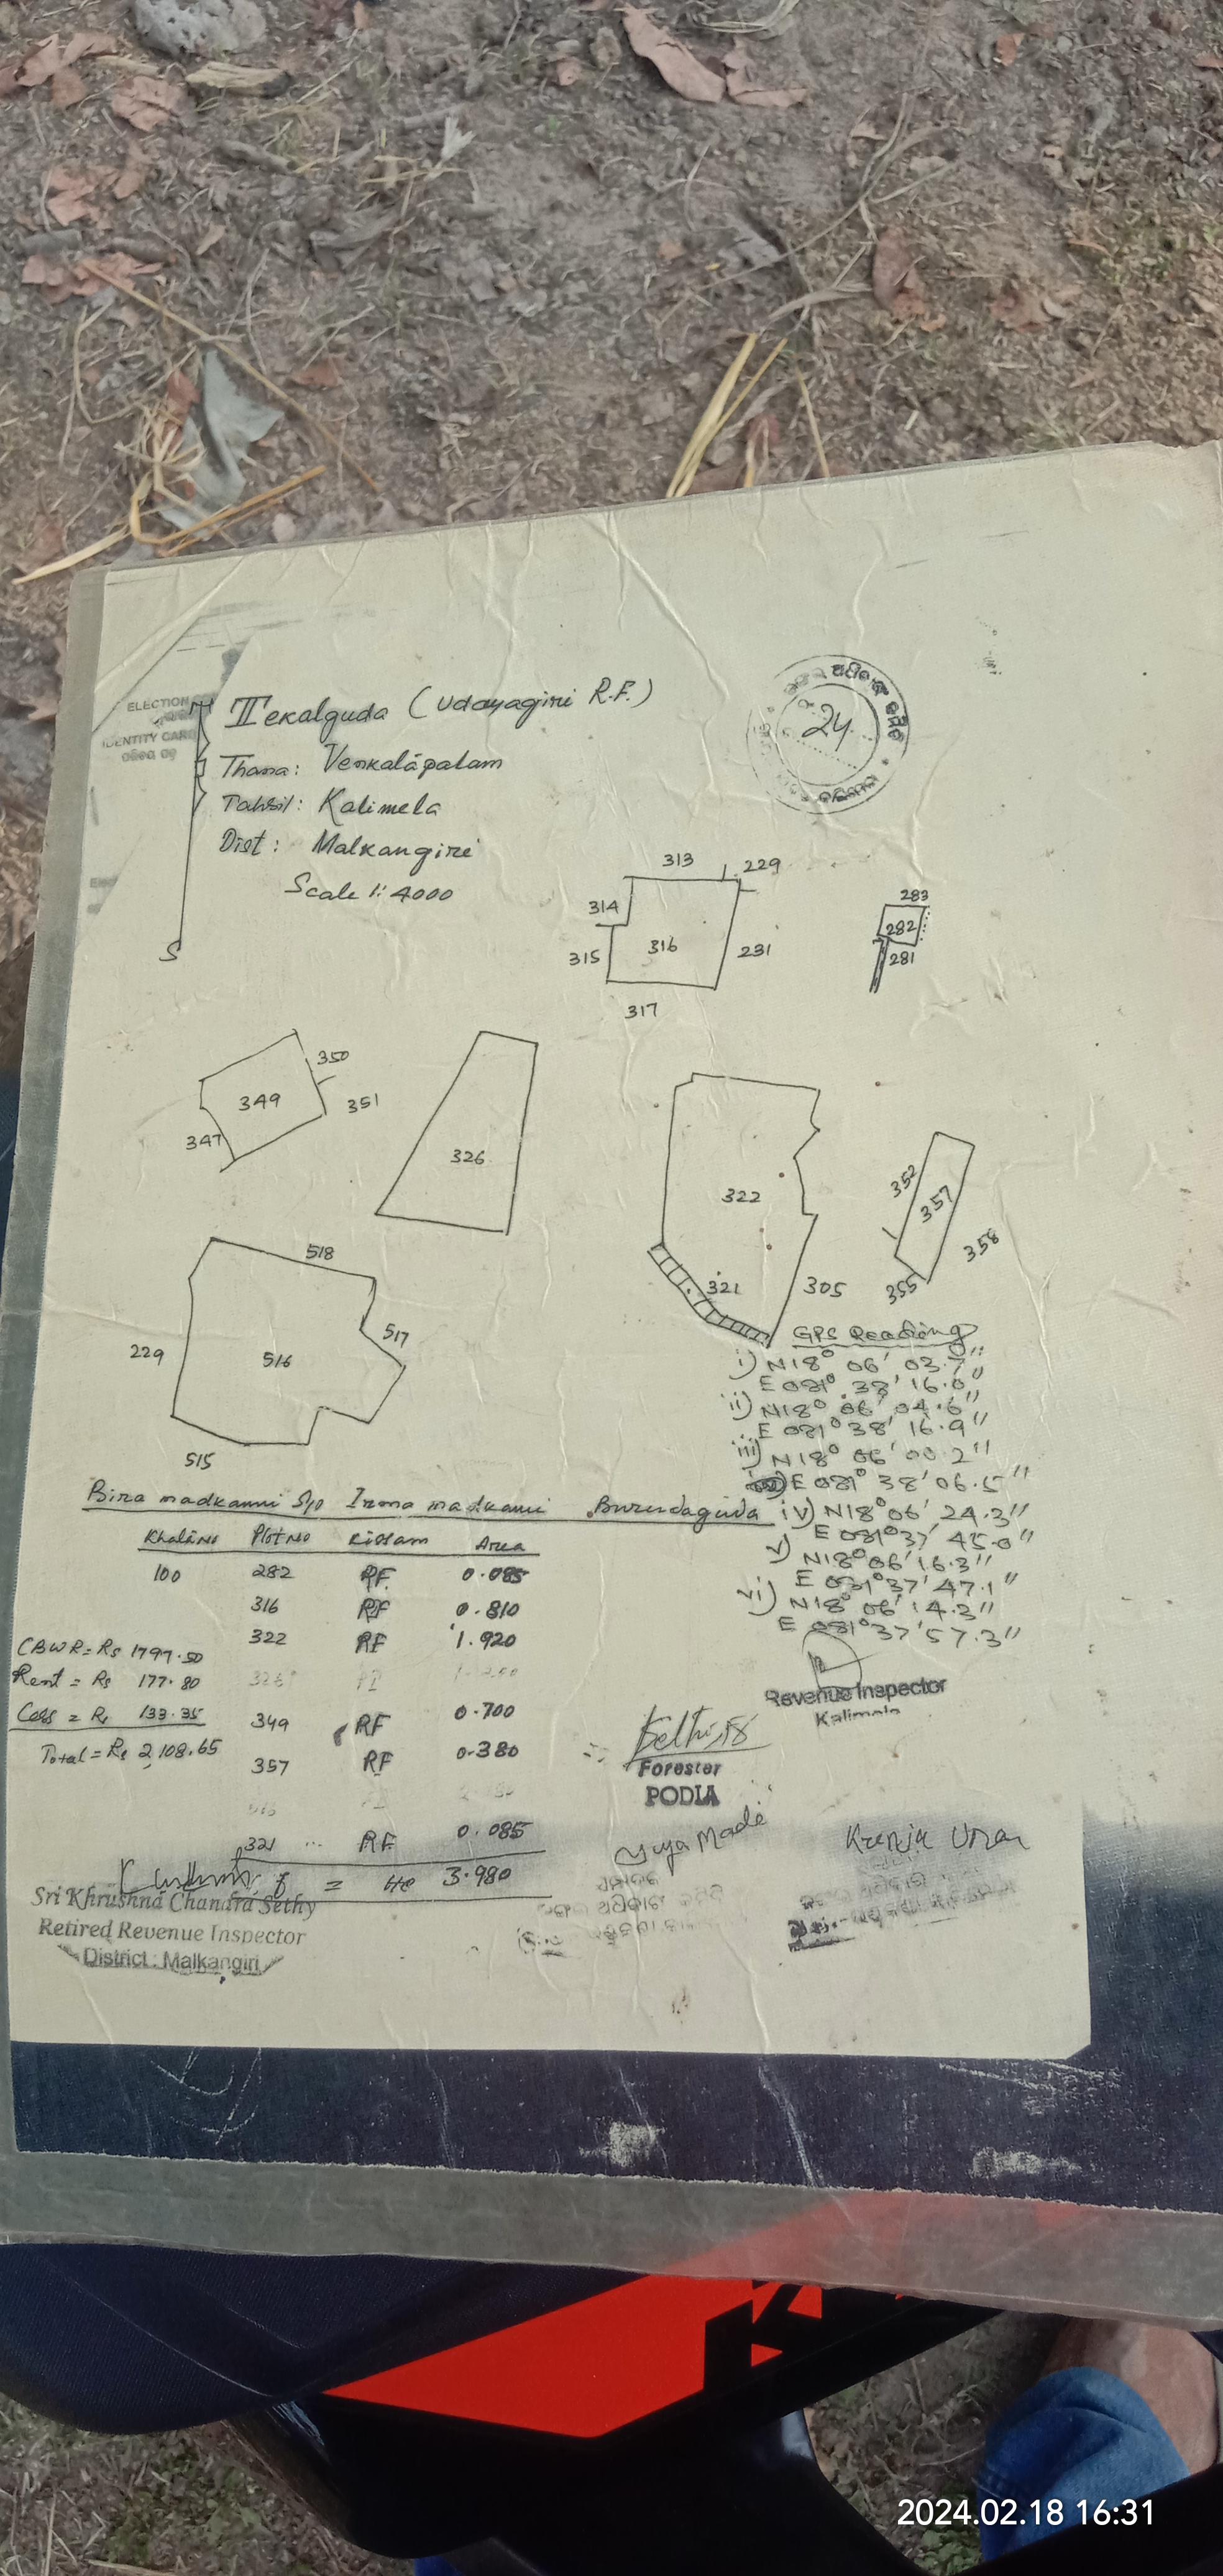 ELECTION
IDENTITY CARD
Tekalguda (Udayagiri R.F.)
Thana: Venkalāpalam
Tahsil: Kalimela
Dist: Malkangiri
Scale 1: 4000
S
24
313
229
314
316
315
231
317
283
282
281
350
349
351
347
326
322
321
305
352
357
358
355
518
517
229
516
515
GPS Reading
i) N18° 06' 03.7"
E 081° 38' 16.0"
ii) N18° 06' 04.6"
E 081° 38' 16.9"
iii) N18° 06' 00.2"
E 081° 38' 06.5"
iv) N18° 06' 24.3"
E 081° 37' 45.0"
v) N18° 06' 16.3"
E 081° 37' 47.1"
vi) N18° 06' 14.2"
E 081° 37' 57.3"
Bira madkami S/o Irma madkami Burudaguda
Khata No Plot No Kissam Area
100 282 RF 0.085
316 RF 0.810
322 RF 1.920
326
349 RF 0.700
357 RF 0.380
321 ... RF 0.085
= He 3.980
CBWR = Rs 1797.50
Rent = Rs 177.80
Cess = Rs 133.35
Total = Rs 2,108.65
Revenue Inspector
Kalimela
Forester
PODIA
Sri Khrushna Chandra Sethy
Retired Revenue Inspector
District : Malkangiri
2024.02.18 16:31